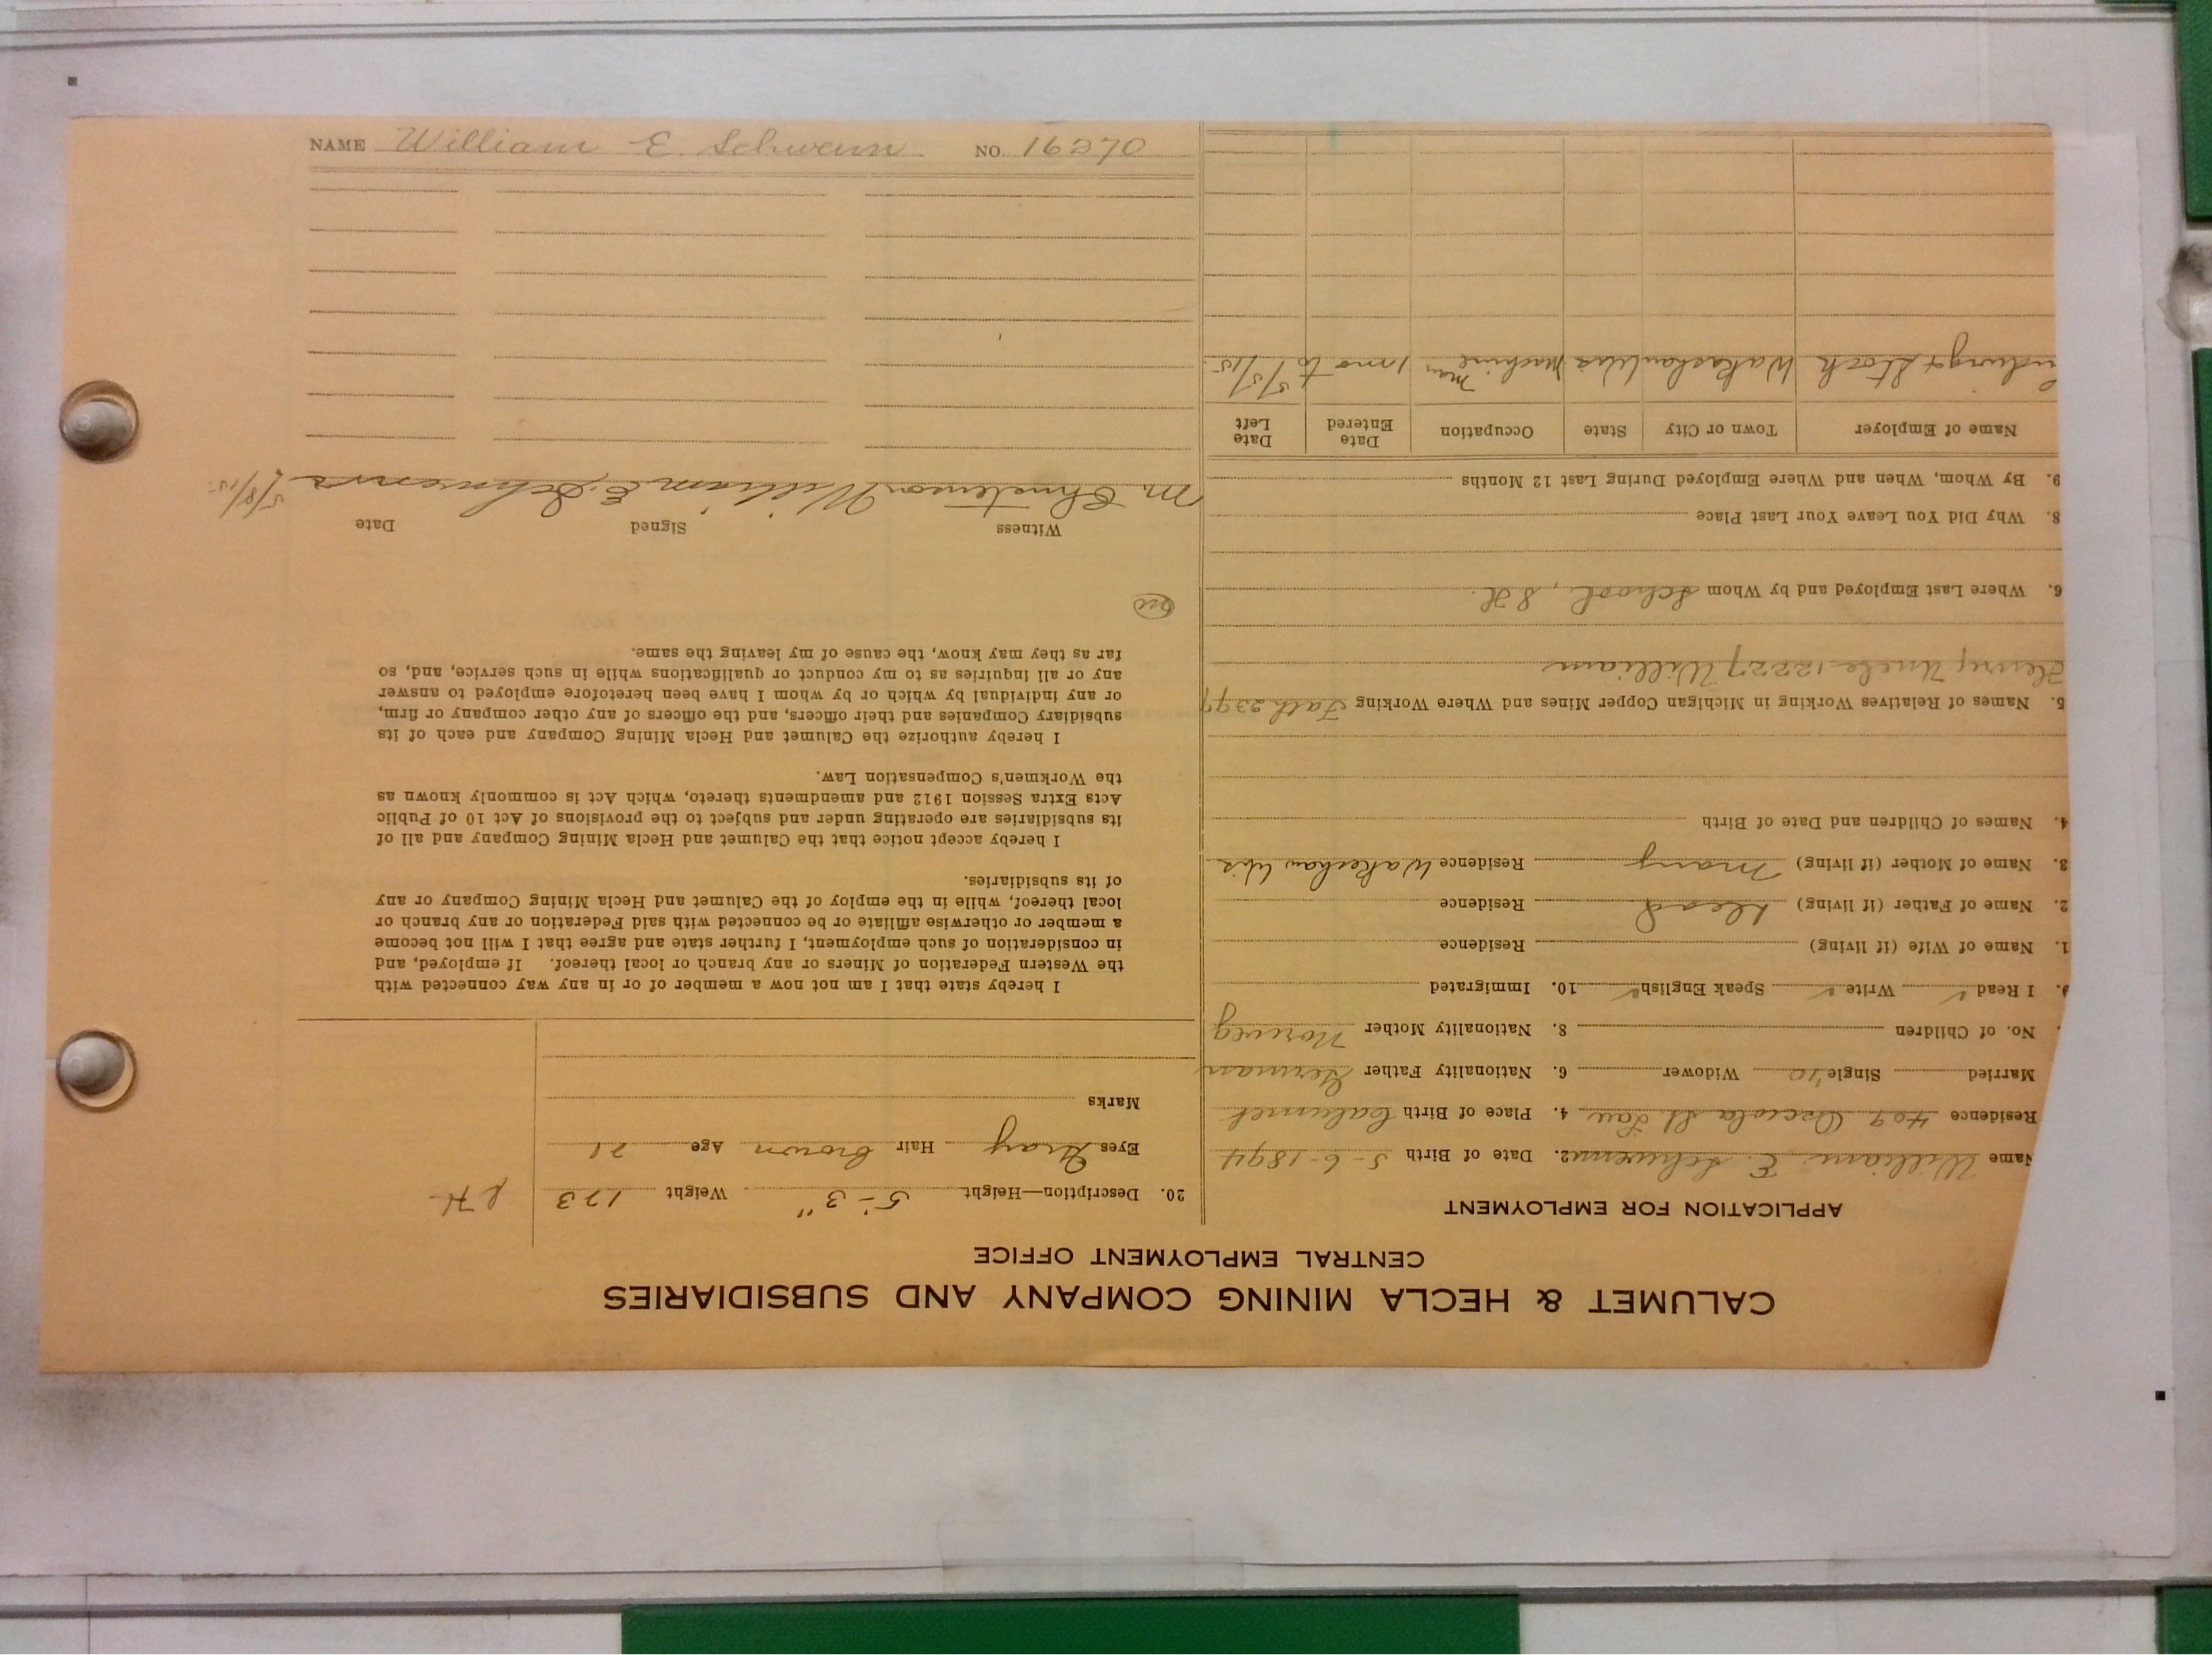 CALUMET & HECLA MINING COMPANY AND SUBSIDIARIES
CENTRAL EMPLOYMENT OFFICE
APPLICATION FOR EMPLOYMENT
Name William E. Schwenn 2. Date of Birth 5-6-1894
Residence 409 Osceola St Lau 4. Place of Birth Calumet
Married Single Widower 6. Nationality Father German
No. of Children 8. Nationality Mother Norweg
I Read ✓ Write ✓ Speak English ✓ 10. Immigrated
1. Name of Wife (if living) Residence
2. Name of Father (if living) Dead Residence
3. Name of Mother (if living) Mary Residence Wakeshau Wis
4. Names of Children and Date of Birth
5. Names of Relatives Working in Michigan Copper Mines and Where Working Fath
Henry Uncle 12227 William
6. Where Last Employed and by Whom School, S H.
8. Why Did You Leave Your Last Place
9. By Whom, When and Where Employed During Last 12 Months
Name of Employer Town or City State Occupation Date Entered Date Left
& Stoch Wakeshau Wis Machine man 1 mo to 5/5/15
20. Description—Height 5'-3" Weight 123
Eyes Gray Hair brown Age 21
Marks
I hereby state that I am not now a member of or in any way connected with
the Western Federation of Miners or any branch or local thereof. If employed, and
in consideration of such employment, I further state and agree that I will not become
a member or otherwise affiliate or be connected with said Federation or any branch or
local thereof, while in the employ of the Calumet and Hecla Mining Company or any
of its subsidiaries.
I hereby accept notice that the Calumet and Hecla Mining Company and all of
its subsidiaries are operating under and subject to the provisions of Act 10 of Public
Acts Extra Session 1912 and amendments thereto, which Act is commonly known as
the Workmen's Compensation Law.
I hereby authorize the Calumet and Hecla Mining Company and each of its
subsidiary Companies and their officers, and the officers of any other company or firm,
or any individual by which or by whom I have been heretofore employed to answer
any or all inquiries as to my conduct or qualifications while in such service, and, so
far as they may know, the cause of my leaving the same.
Witness Signed Date
M. William E. Schwenn 5/8/15
NAME William E Schwenn NO. 16270